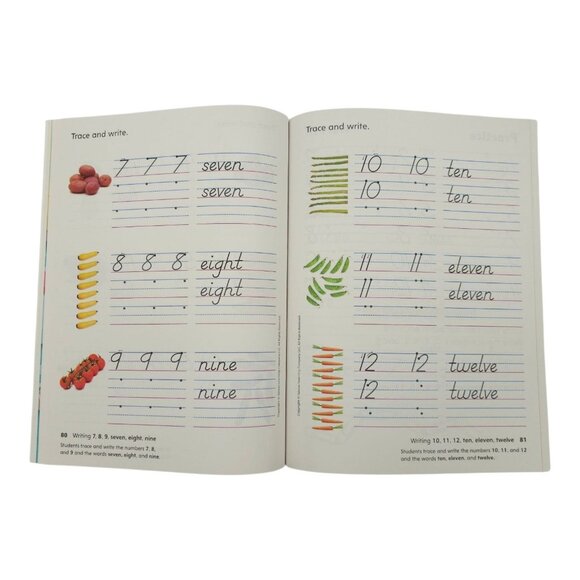 Trace and write.
7 7 7 seven
seven
8 8 8 eight
eight
9 9 9 nine
nine
80 Writing 7, 8, 9, seven, eight, nine
Students trace and write the numbers 7, 8,
and 9 and the words seven, eight, and nine.
Trace and write.
10 10 ten
10 ten
11 11 eleven
11 eleven
12 12 twelve
12 twelve
Writing 10, 11, 12, ten, eleven, twelve 81
Students trace and write the numbers 10, 11, and 12
and the words ten, eleven, and twelve.